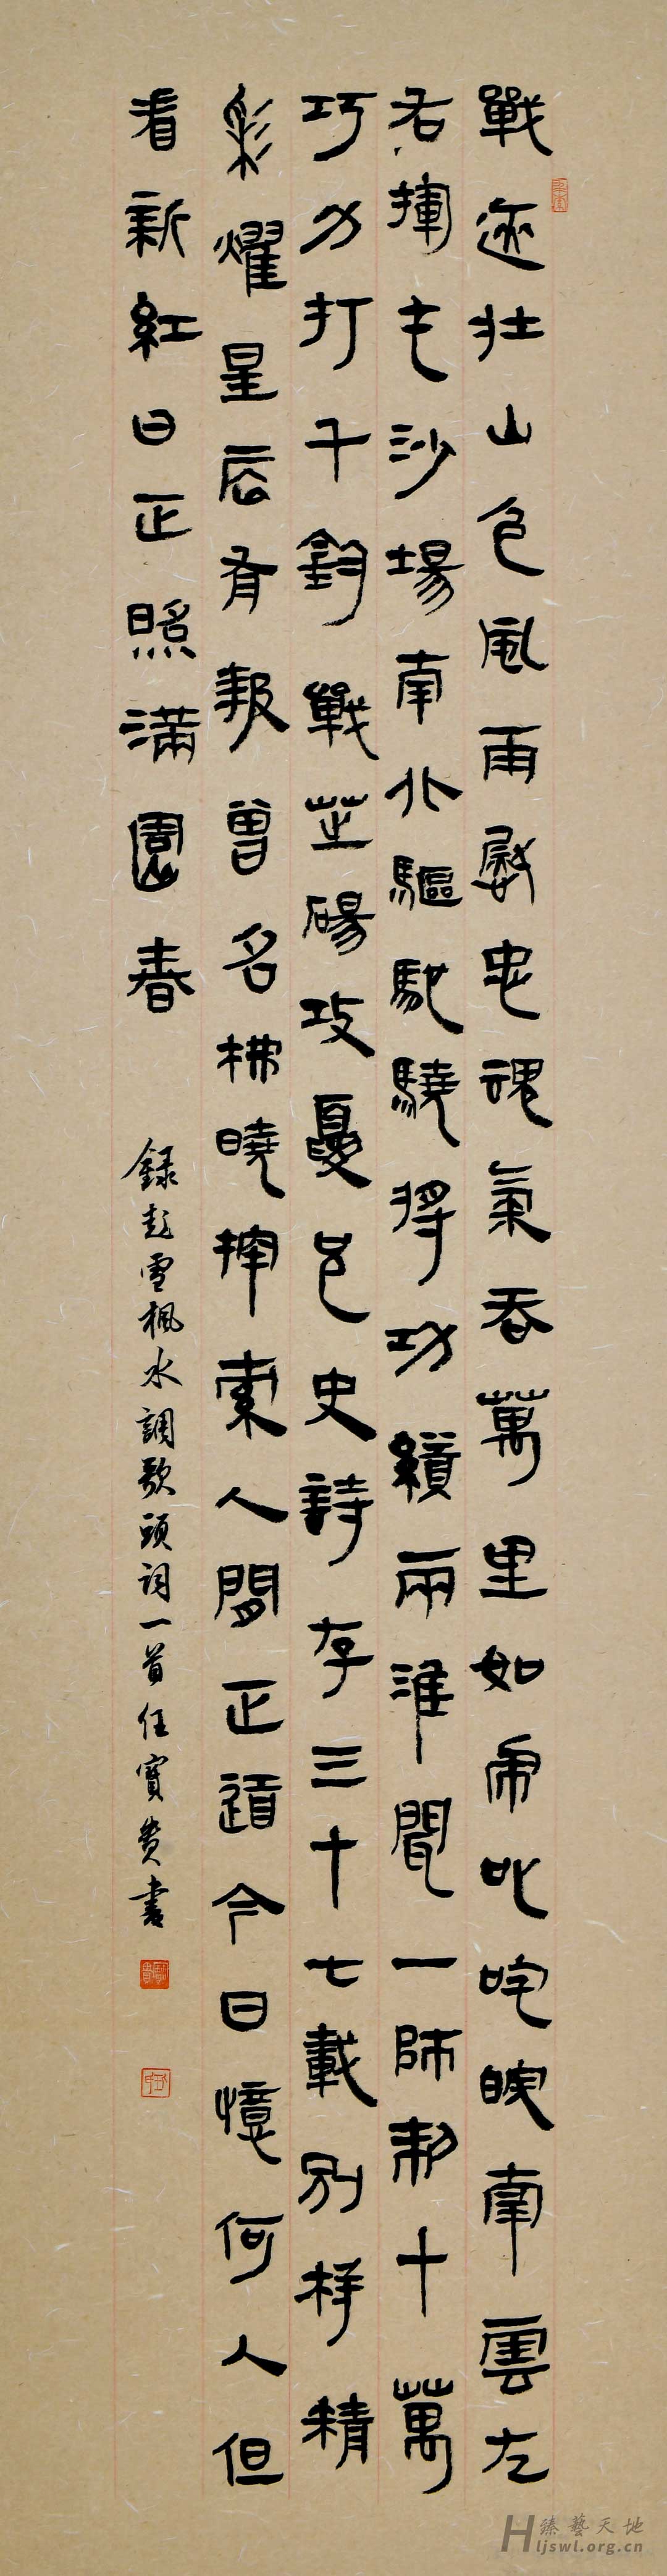 戰迹壮山色風雨慰忠魂氣吞萬里如虎叱咤皖南雲左
右揮沙場南北驅馳驍將功績兩淮聞一師十萬
巧力打千鈞戰芒碭攻夏邑史詩存三十七載別样精
彩耀星辰有報曾名拂曉探索人間正道今日憶何人但
看新紅日正照满園春
録彭雪楓水調歌頭詞一首任寶貴書
臻藝天地
Hljswl.org.cn